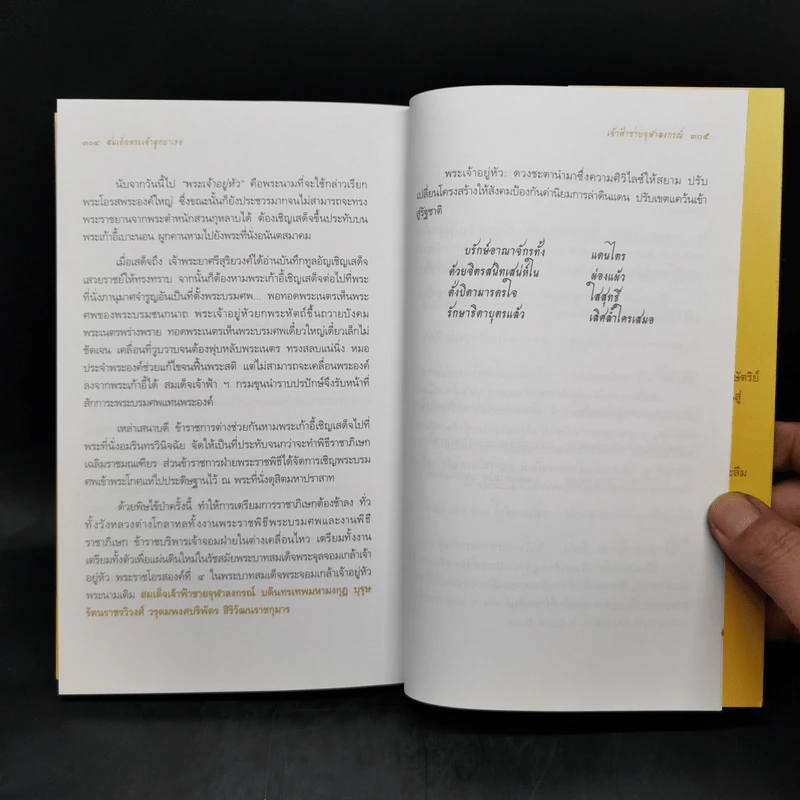 ๓๐๔ สมเด็จพระเจ้าลูกยาเธอ
นับจากวันนี้ไป “พระเจ้าอยู่หัว” คือพระนามที่จะใช้กล่าวเรียก
พระโอรสพระองค์ใหญ่ ซึ่งขณะนั้นก็ยังประชวรมากจนไม่สามารถจะทรง
พระราชยานจากพระตำหนักสวนกุหลาบได้ ต้องเชิญเสด็จขึ้นประทับบน
พระเก้าอี้เบาะนอน ผูกคานหามไปยังพระที่นั่งอนันตสมาคม
เมื่อเสด็จถึง เจ้าพระยาศรีสุริยวงศ์ได้อ่านบันทึกทูลอัญเชิญเสด็จ
เสวยราชย์ให้ทรงทราบ จากนั้นก็ต้องหามพระเก้าอี้เชิญเสด็จต่อไปที่พระ
ที่นั่งภานุมาศจำรูญอันเป็นที่ตั้งพระบรมศพ... พอทอดพระเนตรเห็นพระ
ศพของพระบรมชนกนาถ พระเจ้าอยู่หัวยกพระหัตถ์ขึ้นถวายบังคม
พระเนตรพร่างพราย ทอดพระเนตรเห็นพระบรมศพเดี๋ยวใหญ่เดี๋ยวเล็กไม่
ชัดเจน เคลื่อนที่วูบวาบจนต้องฟุบหลับพระเนตร ทรงสลบแน่นิ่ง หมอ
ประจำพระองค์ช่วยแก้ไขจนฟื้นพระสติ แต่ไม่สามารถจะเคลื่อนพระองค์
ลงจากพระเก้าอี้ได้ สมเด็จเจ้าฟ้า ฯ กรมขุนบำราบปรปักษ์จึงรับหน้าที่
สักการะพระบรมศพแทนพระองค์
เหล่าเสนาบดี ข้าราชการต่างช่วยกันหามพระเก้าอี้เชิญเสด็จไปที่
พระที่นั่งอมรินทรวินิจฉัย จัดให้เป็นที่ประทับจนกว่าจะทำพิธีราชาภิเษก
เฉลิมราชมณเฑียร ส่วนข้าราชการฝ่ายพระราชพิธีได้จัดการเชิญพระบรม
ศพเข้าพระโกศแห่ไปประดิษฐานไว้ ณ พระที่นั่งดุสิตมหาปราสาท
ด้วยพิษไข้ป่าครั้งนี้ ทำให้การเตรียมการราชาภิเษกต้องช้าลง ทั่ว
ทั้งวังหลวงต่างโกลาหลทั้งงานพระราชพิธีพระบรมศพและงานพิธี
ราชาภิเษก ข้าราชบริพารเจ้าจอมฝ่ายในต่างเคลื่อนไหว เตรียมทั้งงาน
เตรียมทั้งตัวเพื่อแผ่นดินใหม่ในรัชสมัยพระบาทสมเด็จพระจุลจอมเกล้าเจ้า
อยู่หัว พระราชโอรสองค์ที่ ๔ ในพระบาทสมเด็จพระจอมเกล้าเจ้าอยู่หัว
พระนามเดิม สมเด็จเจ้าฟ้าชายจุฬาลงกรณ์ บดินทรเทพมหามงกุฎ บุรุษ
รัตนราชรวิวงศ์ วรุตมพงศบริพัตร สิริวัฒนราชกุมาร
เจ้าฟ้าชายจุฬาลงกรณ์ ๓๐๕
พระเจ้าอยู่หัว: ดวงชะตานำมาซึ่งความศิวิไลซ์ให้สยาม ปรับ
เปลี่ยนโครงสร้างให้สังคมป้องกันค่านิยมการล่าดินแดน ปรับเขตแคว้นเข้า
สู่รัฐชาติ
บรักษ์อาณาจักรทั้ง แดนไตร
ด้วยจิตรสนิทเสน่ห์ใน ผ่องแผ้ว
ดั่งปิตามารดรใจ ใสสุทธิ์
รักษาธิดาบุตรแล้ว เลิศล้ำใครเสมอ
ษัตริย์